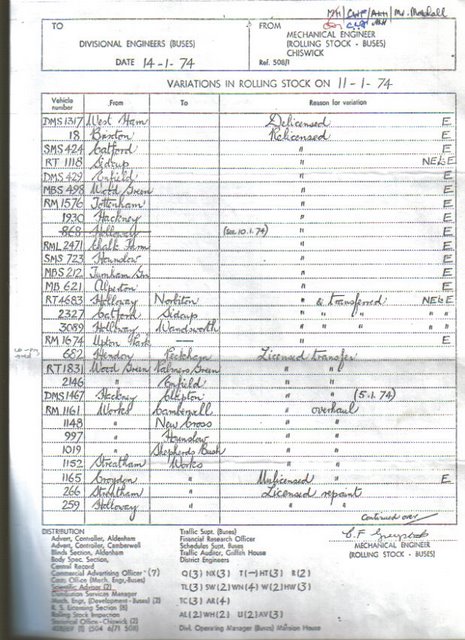 TO
DIVISIONAL ENGINEERS (BUSES)
DATE 14-1-74
FROM
MECHANICAL ENGINEER
(ROLLING STOCK - BUSES)
CHISWICK
Ref. 508/1
VARIATIONS IN ROLLING STOCK ON 11-1-74
Vehicle number From To Reason for variation
DMS 1317 West Ham Delicensed E
18 Brixton Relicensed E
SMS 424 Catford " E
RT 1118 Sidcup " NE&E
DMS 429 Enfield " E
MBS 498 Wood Green " E
RM 1576 Tottenham " E
1930 Hackney " E
868 Holloway (see 10.1.74) " E
RML 2471 Chalk Farm " E
SMS 723 Hounslow " E
MBS 212 Turnham Gn " E
MB 621 Alperton " E
RT 4683 Holloway Norbiton " & transferred NE&E
2327 Catford Sidcup " " " " "
3089 Holloway Wandsworth " " " " "
RM 1674 Upton Park — " E
682 Hendon Peckham Licensed transfer
RT 1831 Wood Green Palmers Green " "
2146 " Enfield " "
DMS 1467 Hackney Clapton " " (5.1.74)
RM 1161 Works Camberwell " overhaul
1148 " New Cross " "
997 " Hounslow " "
1019 " Shepherds Bush " "
1152 Streatham Works " "
1165 Croydon " Unlicensed " E
266 Streatham " Licensed repaint
259 Holloway " " "
Continued over
DISTRIBUTION
Advert. Controller, Aldenham
Advert. Controller, Camberwell
Blinds Section, Aldenham
Body Shop Section, Aldenham
Central Record
Commercial Advertising Officer (7)
Costs Office (Mech. Engr. Buses)
Scientific Adviser (2)
Distribution Services Manager
Mech. Engr. (Development - Buses) (2)
R. S. Licensing Section (8)
Rolling Stock Inspection
Statistical Office - Chiswick (2)
Traffic Supt. (Buses)
Financial Research Officer
Schedules Supt. Buses
Traffic Auditor, Griffith House
District Engineers
Q (3) NX (3) T (—) HT (3) R (2)
TL (3) SW (2) WN (4) W (2) HW (3)
TC (3) AR (4)
AL (2) WH (2) U (2) AV (3)
Divl. Operating Manager (Buses) Mansion House
MECHANICAL ENGINEER
(ROLLING STOCK - BUSES)